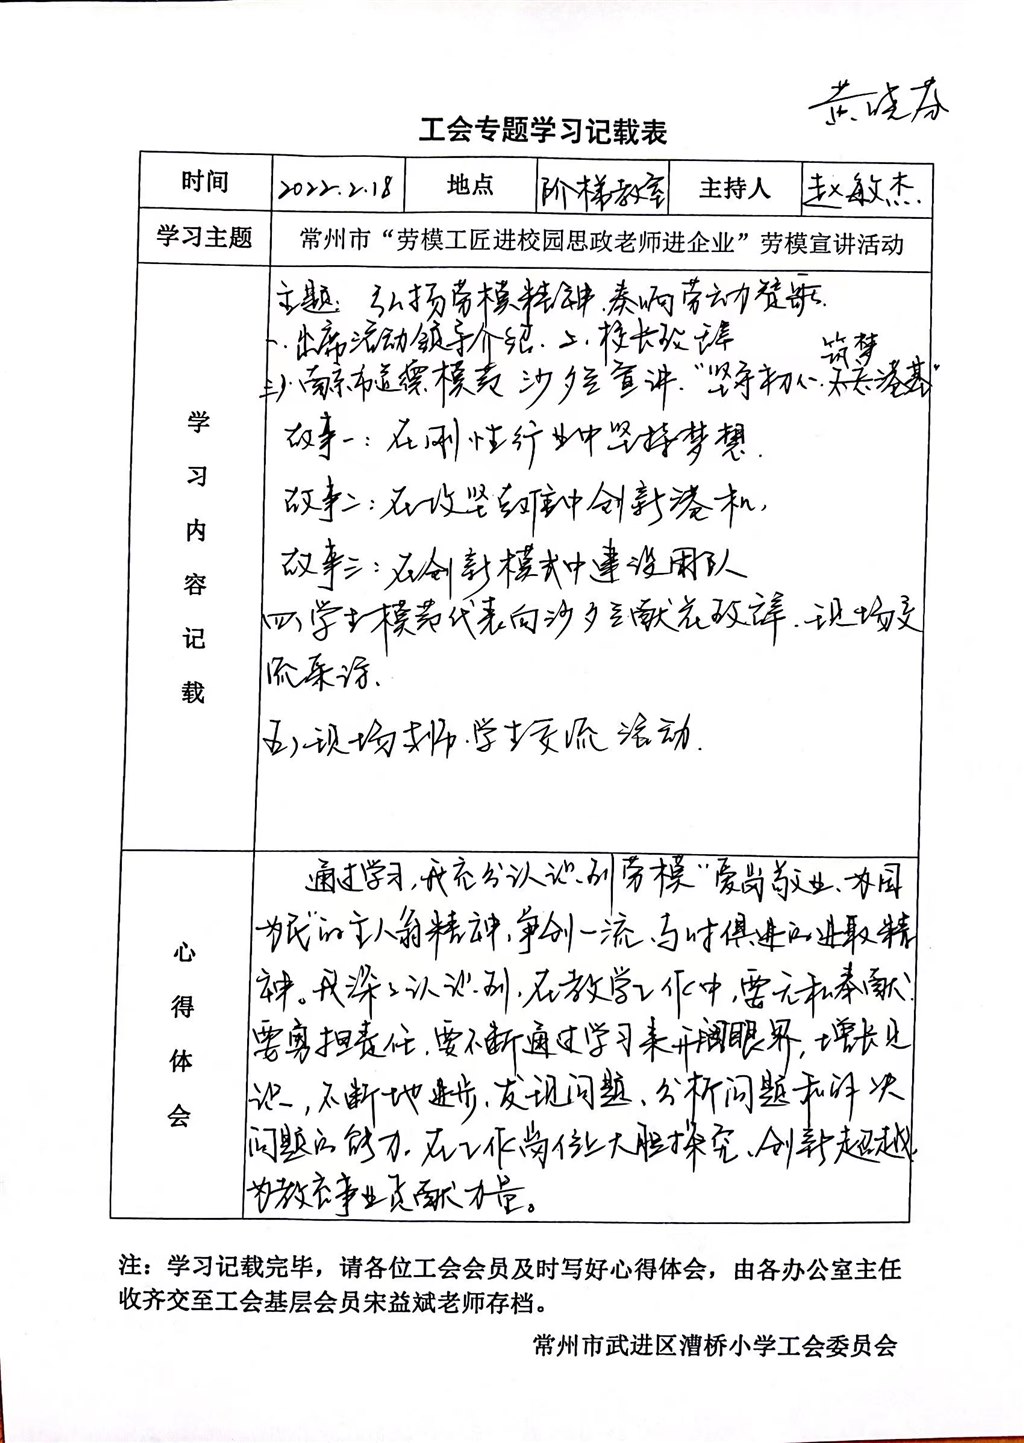 黄晓芬
工会专题学习记载表
时间 2022.2.18 地点 阶梯教室 主持人 赵敏杰
学习主题 常州市“劳模工匠进校园思政老师进企业”劳模宣讲活动
学习内容记载
主题：弘扬劳模精神、奏响劳动赞歌.
一、出席活动领导介绍. 二、校长致辞
筑梦
三）南京市道德模范 沙夕兰宣讲.“坚守初心. 港基”
故事一：在刚性行业中坚持梦想.
故事二：在攻坚克难中创新港机，
故事三：在创新模式中建设团队
四）学生模范代表向沙夕兰献花致辞. 现场交
流采访.
五）现场老师.学生交流 活动.
心得体会
通过学习，我充分认识到劳模“爱岗敬业、为国
为民”的主人翁精神，争创一流、与时俱进的进取精
神。我深深认识到，在教学工作中，要无私奉献，
要勇担责任，要不断通过学习来开阔眼界，增长见
识，不断地进步、发现问题、分析问题和解决
问题的能力. 在工作岗位上大胆探究、创新超越，
为教育事业贡献力量。
注：学习记载完毕，请各位工会会员及时写好心得体会，由各办公室主任
收齐交至工会基层会员宋益斌老师存档。
常州市武进区漕桥小学工会委员会